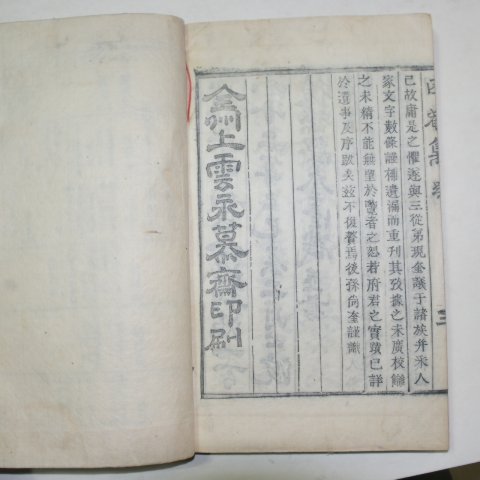 已故庸是之懼遂與三從弟現奎議于諸族幷采人
家文字數條謹補遺漏而重刊其攷據之未廣校讎
之未精不能無望於覽者之恕若府君之實蹟已詳
於遺事及序跋矣玆不復贅焉後孫尙奎謹識
上雲永慕齋印刷
集